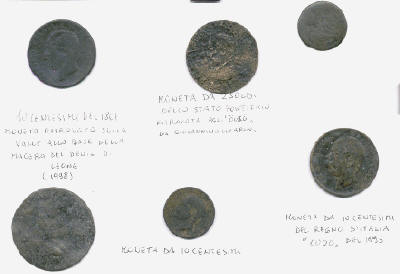 10 CENTESIMI DEL 1861
MONETA RITROVATA NELLA
VALLE ALLA BASE DELLA
MACERA DEL DENTE DI
LEONE
(1998)
MONETA DA 2 SOLDI
DELLO STATO PONTIFICIO
RITROVATA ALL'
DA GIOVANNINO
MONETA DA 10 CENTESIMI
MONETA DA 10 CENTESIMI
DEL REGNO D'ITALIA
DEL 1893